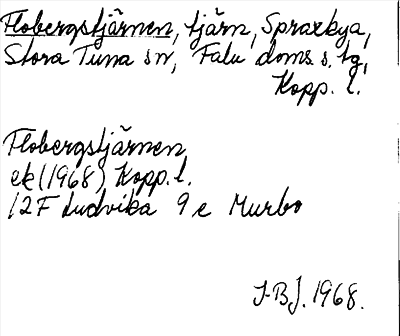 Flobergstjärnen, tjärn, Spraxkya,
Stora Tuna sn, Falu doms. s. tg,
Kopp. l.
Flobergstjärnen
ek (1968) Kopp. l.
12F Ludvika 9 e Murbo
J-BJ. 1968.